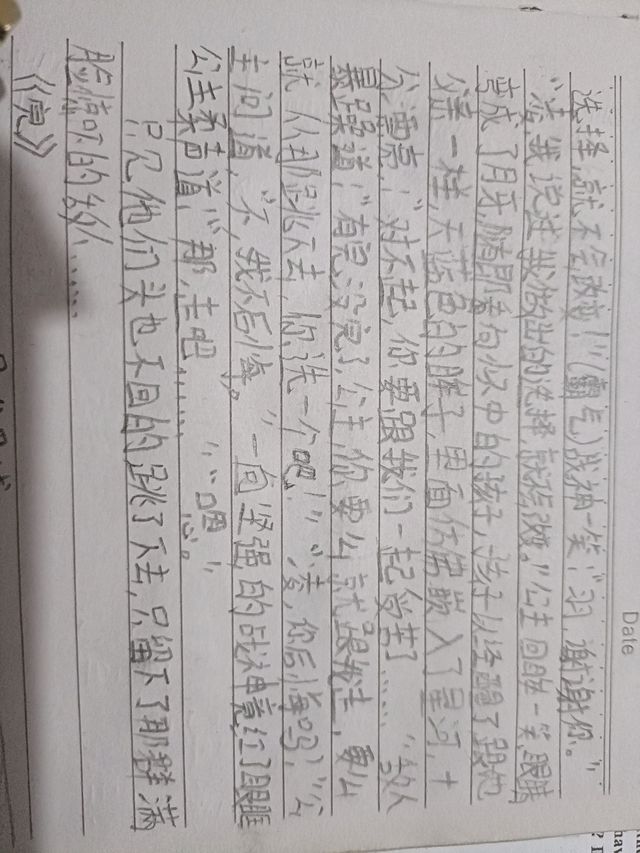 Date
选择,就不会改变!"(霸气)战神一笑:"羽,谢谢你。"
"我说过,我做出的选择,就不改。"公主回眸一笑,眼睛
弯成了月牙,随即看向怀中的孩子,孩子已经醒了,跟他
父亲一样,天蓝色的眸子,里面仿佛嵌入了星河,十
分漂亮!"对不起,你要跟我们一起受苦了……"敌人
暴躁道:"有完没完了,公主,你要么就跟我走,要么
就从那跳下去,你选一个吧!""凌,你后悔吗?"公
主问道,"不,我不后悔。"一向坚强的战神竟红了眼眶
公主柔声道:"那,走吧……""嗯。"
只见他们头也不回的跳了下去,只留下了那群满
脸惊吓的敌人……
《完》